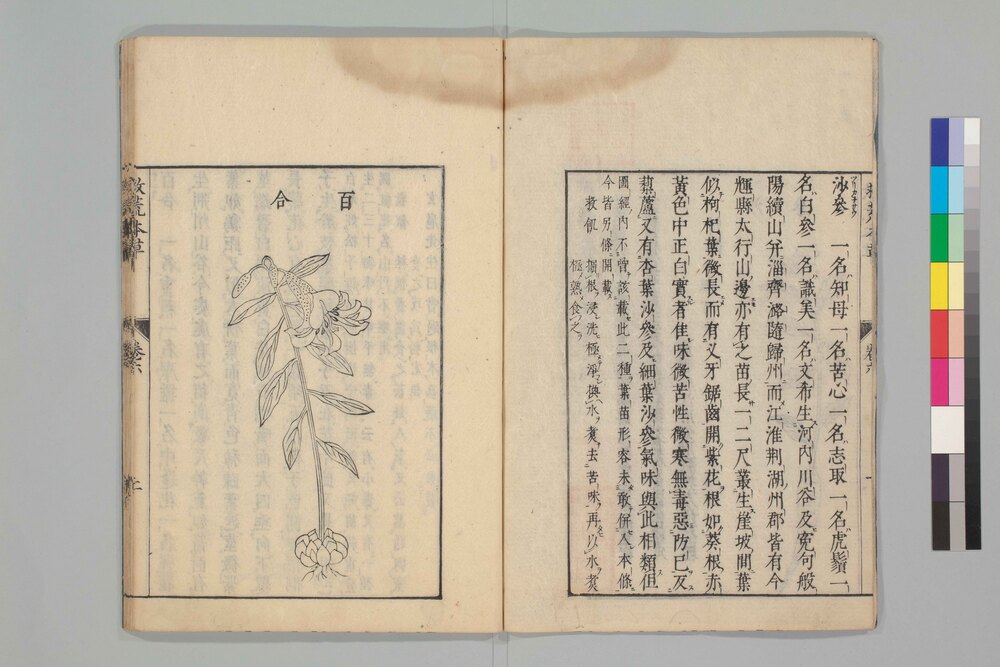 沙參 一名知母一名苦心一名志取一名虎鬚一
名白參一名識美一名文希生河內川谷及寃句般
陽續山幷淄齊潞隨歸州而江淮荆湖州郡皆有今
輝縣太行山邊亦有之苗長一二尺叢生崖坡間葉
似枸杞葉微長而有叉牙鋸齒開紫花根如葵根赤
黃色中正白實者佳味微苦性微寒無毒惡防己反
藜蘆又有杏葉沙參及細葉沙參氣味與此相類但
圖經內不曾該載此二種葉苗形容未敢併入本條
今皆另條開載
救飢 掘根浸洗極淨換水煑去苦味再以水煑
極熟食之
百合
救荒本草
卷六
二